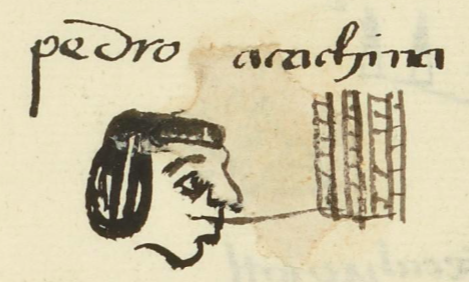 pedro acachina